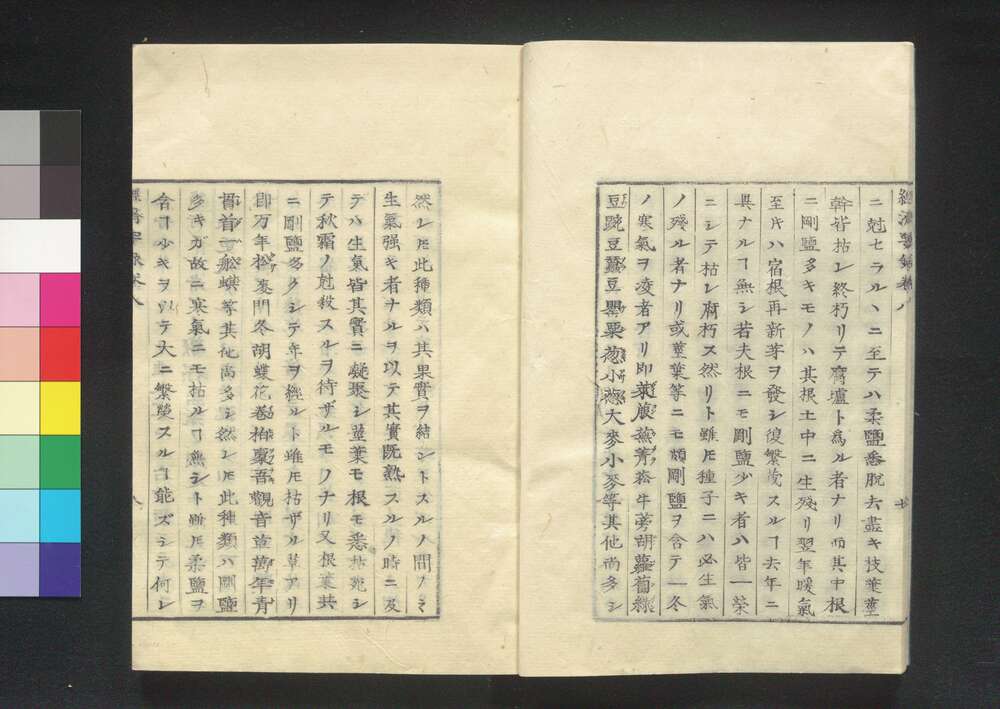 經濟要録巻八
ニ尅セラルヽニ至テハ柔鹽悉脱去盡キ枝葉莖
幹皆枯レ終朽リテ腐壚ト為ル者ナリ而其中根
ニ剛鹽多キモノハ其根土中ニ生殘リ翌年暖氣
至ㇳキハ宿根再新芽ヲ發シ復繁茂スルヿ去年ニ
異ナルヿ無シ若夫根ニモ剛鹽少キ者ハ皆一榮
ニシテ枯レ腐朽ス然リト雖ㇳモ種子ニハ必生氣
ノ殘ル者ナリ或莖葉等ニモ頗剛鹽ヲ含テ一冬
ノ寒氣ヲ凌者アリ即萊菔蕪菁菘牛蒡胡蘿蔔
豆豌豆蠶豆罌粟葱小葱大麥小麥等其他尚多シ
七
然レㇳモ此種類ハ其果實ヲ結ントスルノ間ノミ
生氣强キ者ナルヲ以テ其實既熟スルノ時ニ及
テハ生氣皆其實ニ凝聚シ莖葉モ根モ悉枯死シ
テ秋霜ノ尅殺スルヲ待ザルモノナリ又根葉共
ニ剛鹽多クシテ年ヲ經ルト雖ㇳモ枯ザル草アリ
即万年松麥門冬胡蝶花卷柏藁吾觀音草萬年青
等其他尚多シ然レㇳモ此種類ハ剛鹽
多キガ故ニ寒氣ニモ枯ルヽヿ無シト雖ㇳモ柔鹽ヲ
含ヿ少キヲ以テ大ニ繁殖スルヿ能ズシテ何レ
經濟要録巻八
八